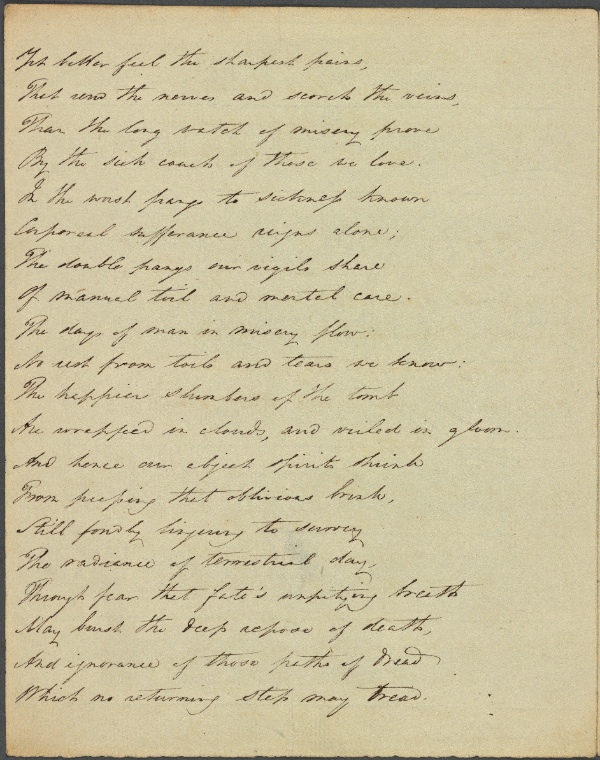 Yet better feel the sharpest pains,
That rend the nerves and scorch the veins,
Than the long watch of misery prove
By the sick couch of those we love.
In the worst pangs to sickness known
Corporeal sufferance reigns alone;
The double pangs our vigils share
Of manual toil and mental care.
The days of man in misery flow:
No rest from toils and tears we know:
The happier slumbers of the tomb
Are wrapped in clouds, and veiled in gloom.
And hence our abject spirits shrink
From peeping that oblivious brink,
Still fondly lingering to survey
The radiance of terrestrial day,
Through fear that fate's unpitying breath
May burst the deep repose of death,
And ignorance of those paths of dread
Which no returning step may tread.